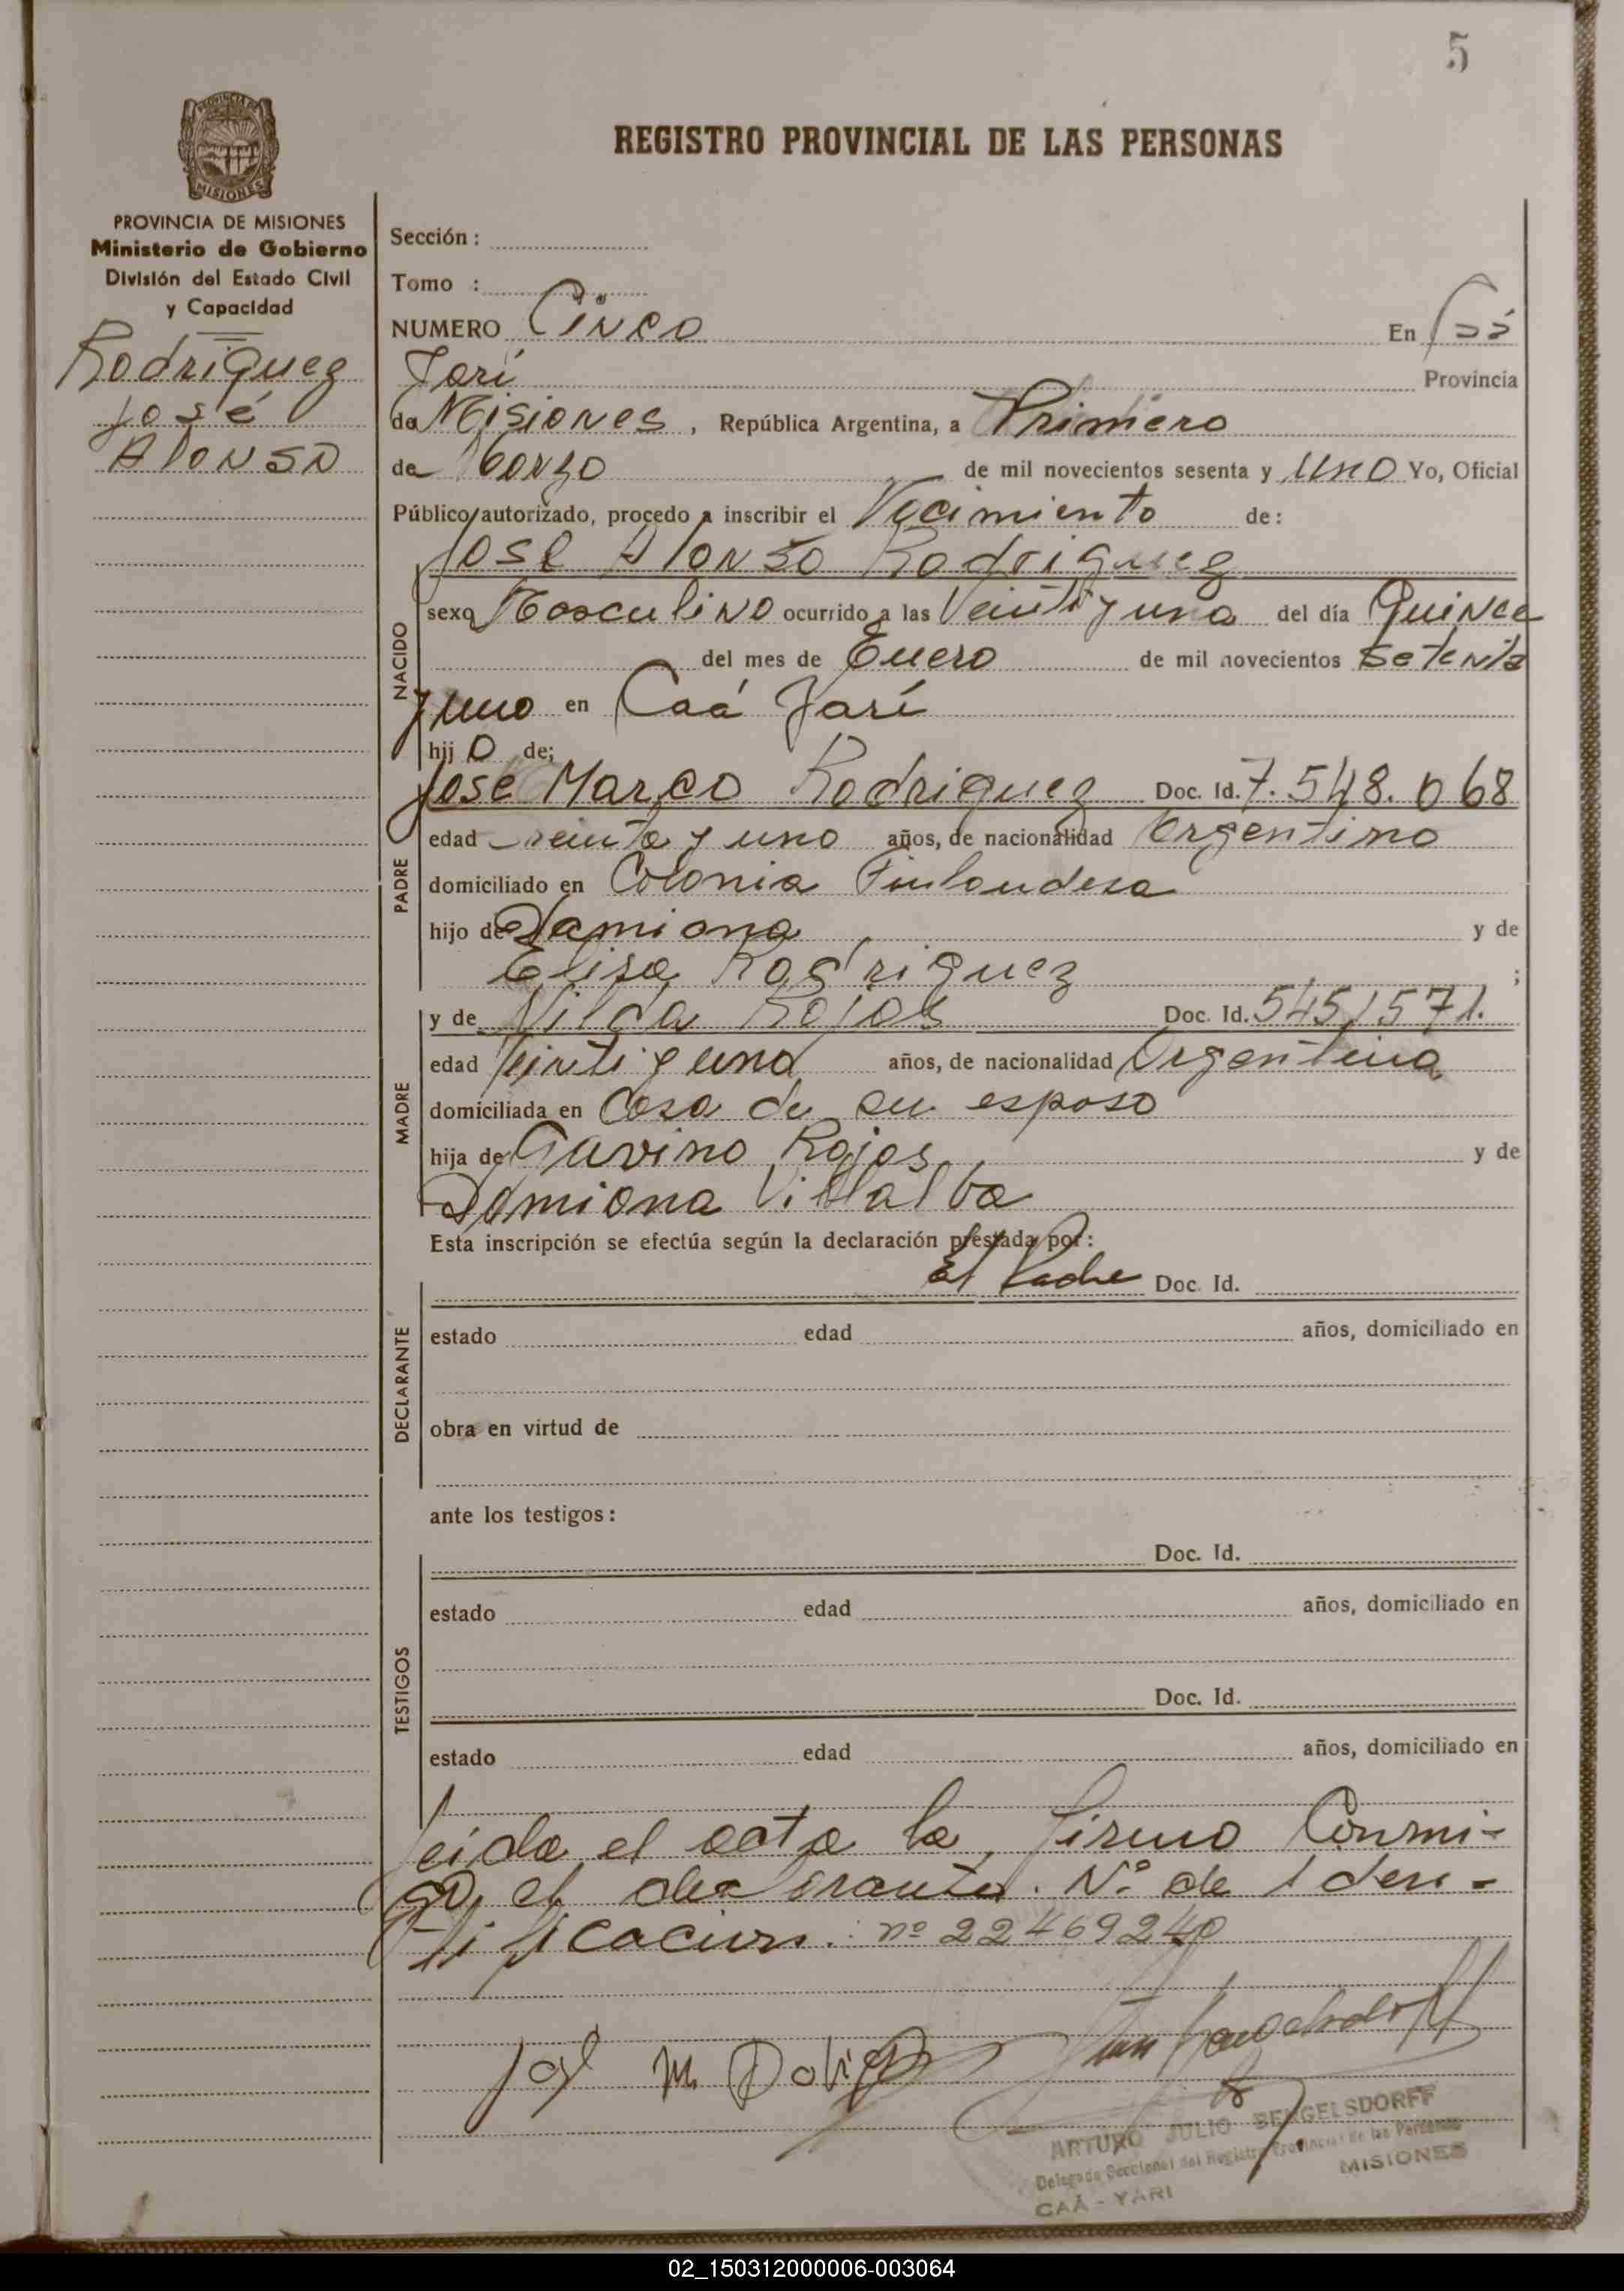 5
PROVINCIA DE MISIONES
REGISTRO PROVINCIAL DE LAS PERSONAS
PROVINCIA DE MISIONES
Ministerio de Gobierno
División del Estado Civil
y Capacidad
Rodríguez
José
Alonso
Sección :
Tomo :
NUMERO Cinco En Caá
Yarí Provincia
de Misiones, República Argentina, a Primero
de Marzo de mil novecientos sesenta y uno Yo, Oficial
Público autorizado, procedo a inscribir el Nacimiento de:
José Alonso Rodriguez
NACIDO
sexo Masculino ocurrido a las Veinti y una del día Quince
del mes de Enero de mil novecientos setenta
y uno en Caá Yarí
hij o de;
PADRE
José Marco Rodriguez Doc. Id. 7.548.068
edad treinta y uno años, de nacionalidad Argentino
domiciliado en Colonia Finlandesa
hijo de Damiana y de
Elisa Rodriguez ;
MADRE
y de Nilda Rojas Doc. Id. 5451571.
edad Veinti y una años, de nacionalidad Argentina
domiciliada en Casa de su esposo
hija de Gavino Rojas y de
Damiana Villalba
Esta inscripción se efectúa según la declaración prestada por:
El Padre Doc. Id.
DECLARANTE
estado edad años, domiciliado en
obra en virtud de
ante los testigos:
TESTIGOS
Doc. Id.
estado edad años, domiciliado en
Doc. Id.
estado edad años, domiciliado en
Leida el acta la firma Conmi-
go el declarante. Nº de Iden-
tificacion: nº 22469240
José M Rodrig
ARTURO JULIO BENGELSDORFF
Delegado Seccional del Registro Provincial de las Personas
CAÁ - YARI MISIONES
02_150312000006-003064